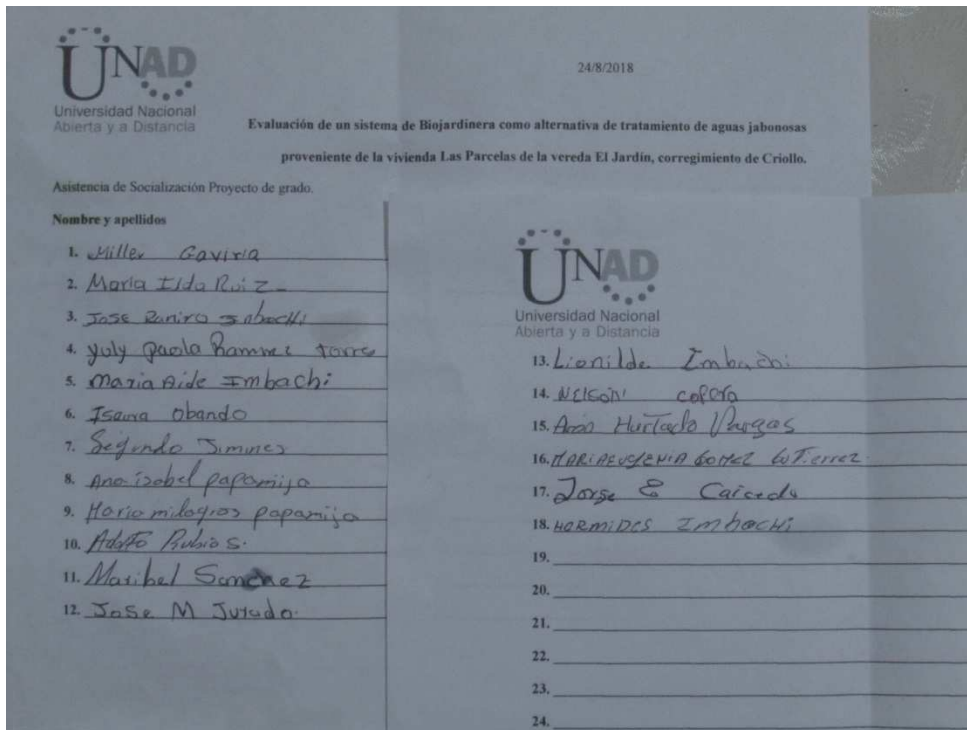 UNAD
Universidad Nacional
Abierta y a Distancia
24/8/2018
Evaluación de un sistema de Biojardinera como alternativa de tratamiento de aguas jabonosas
proveniente de la vivienda Las Parcelas de la vereda El Jardín, corregimiento de Criollo.
Asistencia de Socialización Proyecto de grado.
Nombre y apellidos
1. Miller Gaviria
2. Maria Ilda Ruiz
3. Jose Ramiro
4. Yuly Paola Ramirez Torres
5. Maria Aide Imbachi
6. Isaura Obando
7. Segundo Jimines
8. Ana isabel papamija
9. Maria milagros papamija
10. Adolfo Rubio S.
11. Maribel Sanchez
12. Jose M Jurado.
UNAD
Universidad Nacional
Abierta y a Distancia
13. Lionilde Imbachi
14. NELSON
15. Hurtado Vargas
16. MARIA EUGENIA GOMEZ GUTIERREZ
17. Jorge E Caicedo
18. HERMIDES Imbachi
19.
20.
21.
22.
23.
24.